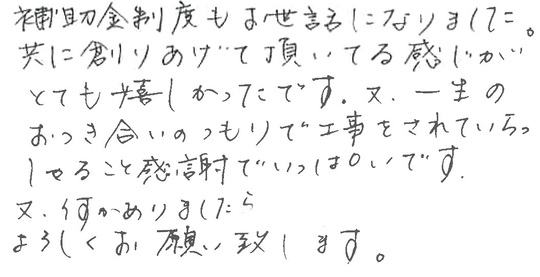 補助金制度もお世話になりました。
共に創りあげて頂いてる感じがい
とても嬉しかったです。又、一生の
おつき合いのつもりで工事をされていらっ
しゃること感謝でいっぱいです。
又、何かありましたら
よろしくお願い致します。